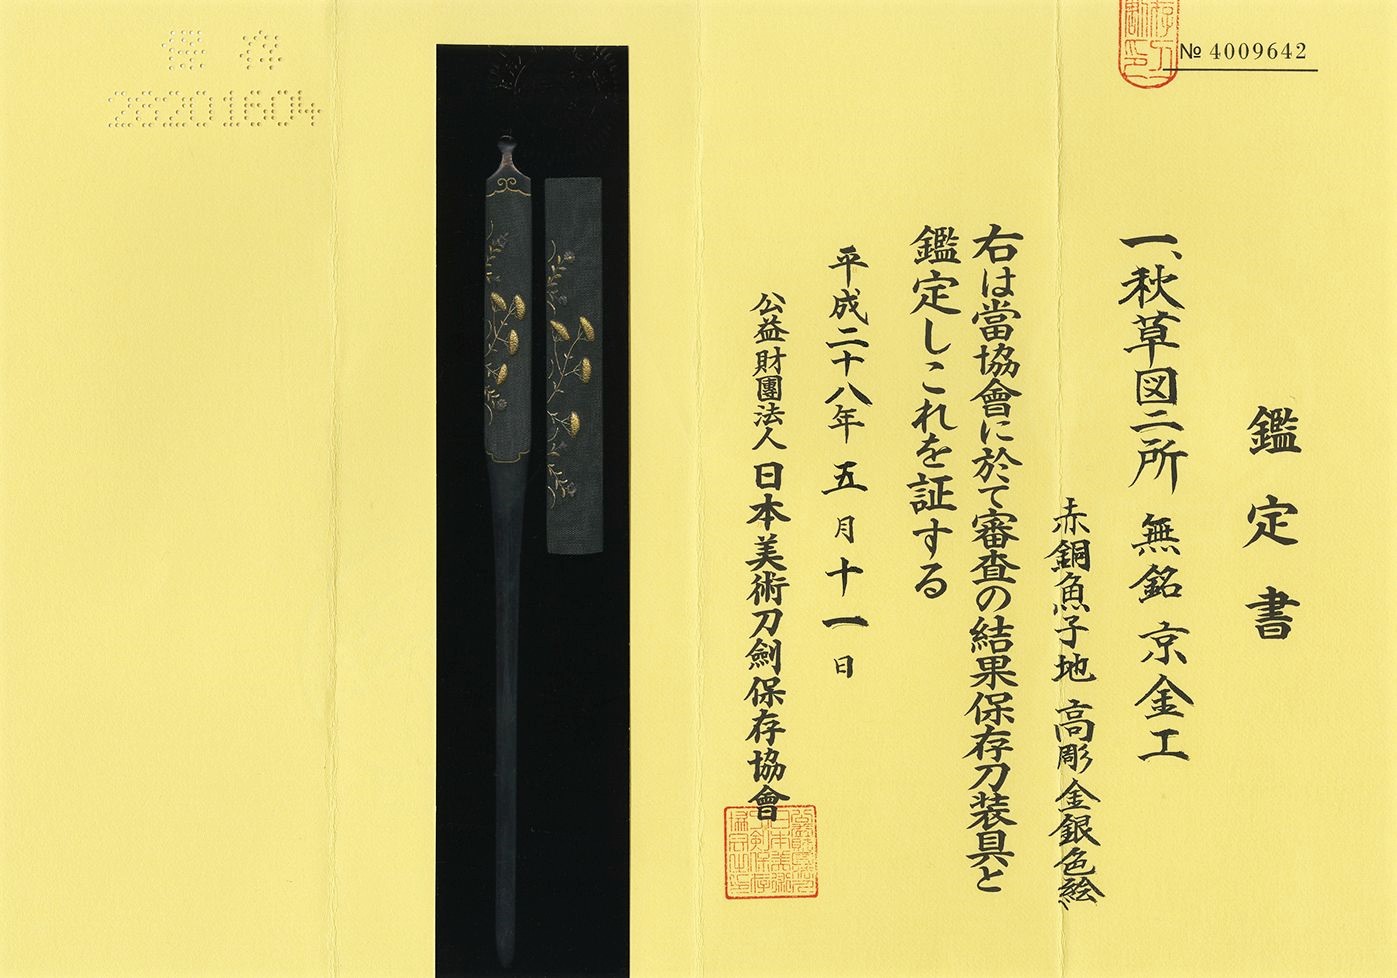 № 4009642
鑑定書
一、秋草図二所 無銘 京金工
赤銅魚子地 高彫金銀色絵
右は當協會に於て審査の結果保存刀装具と
鑑定しこれを証する
平成二十八年 五月十一日
公益財團法人 日本美術刀劍保存協會
保存
28201604